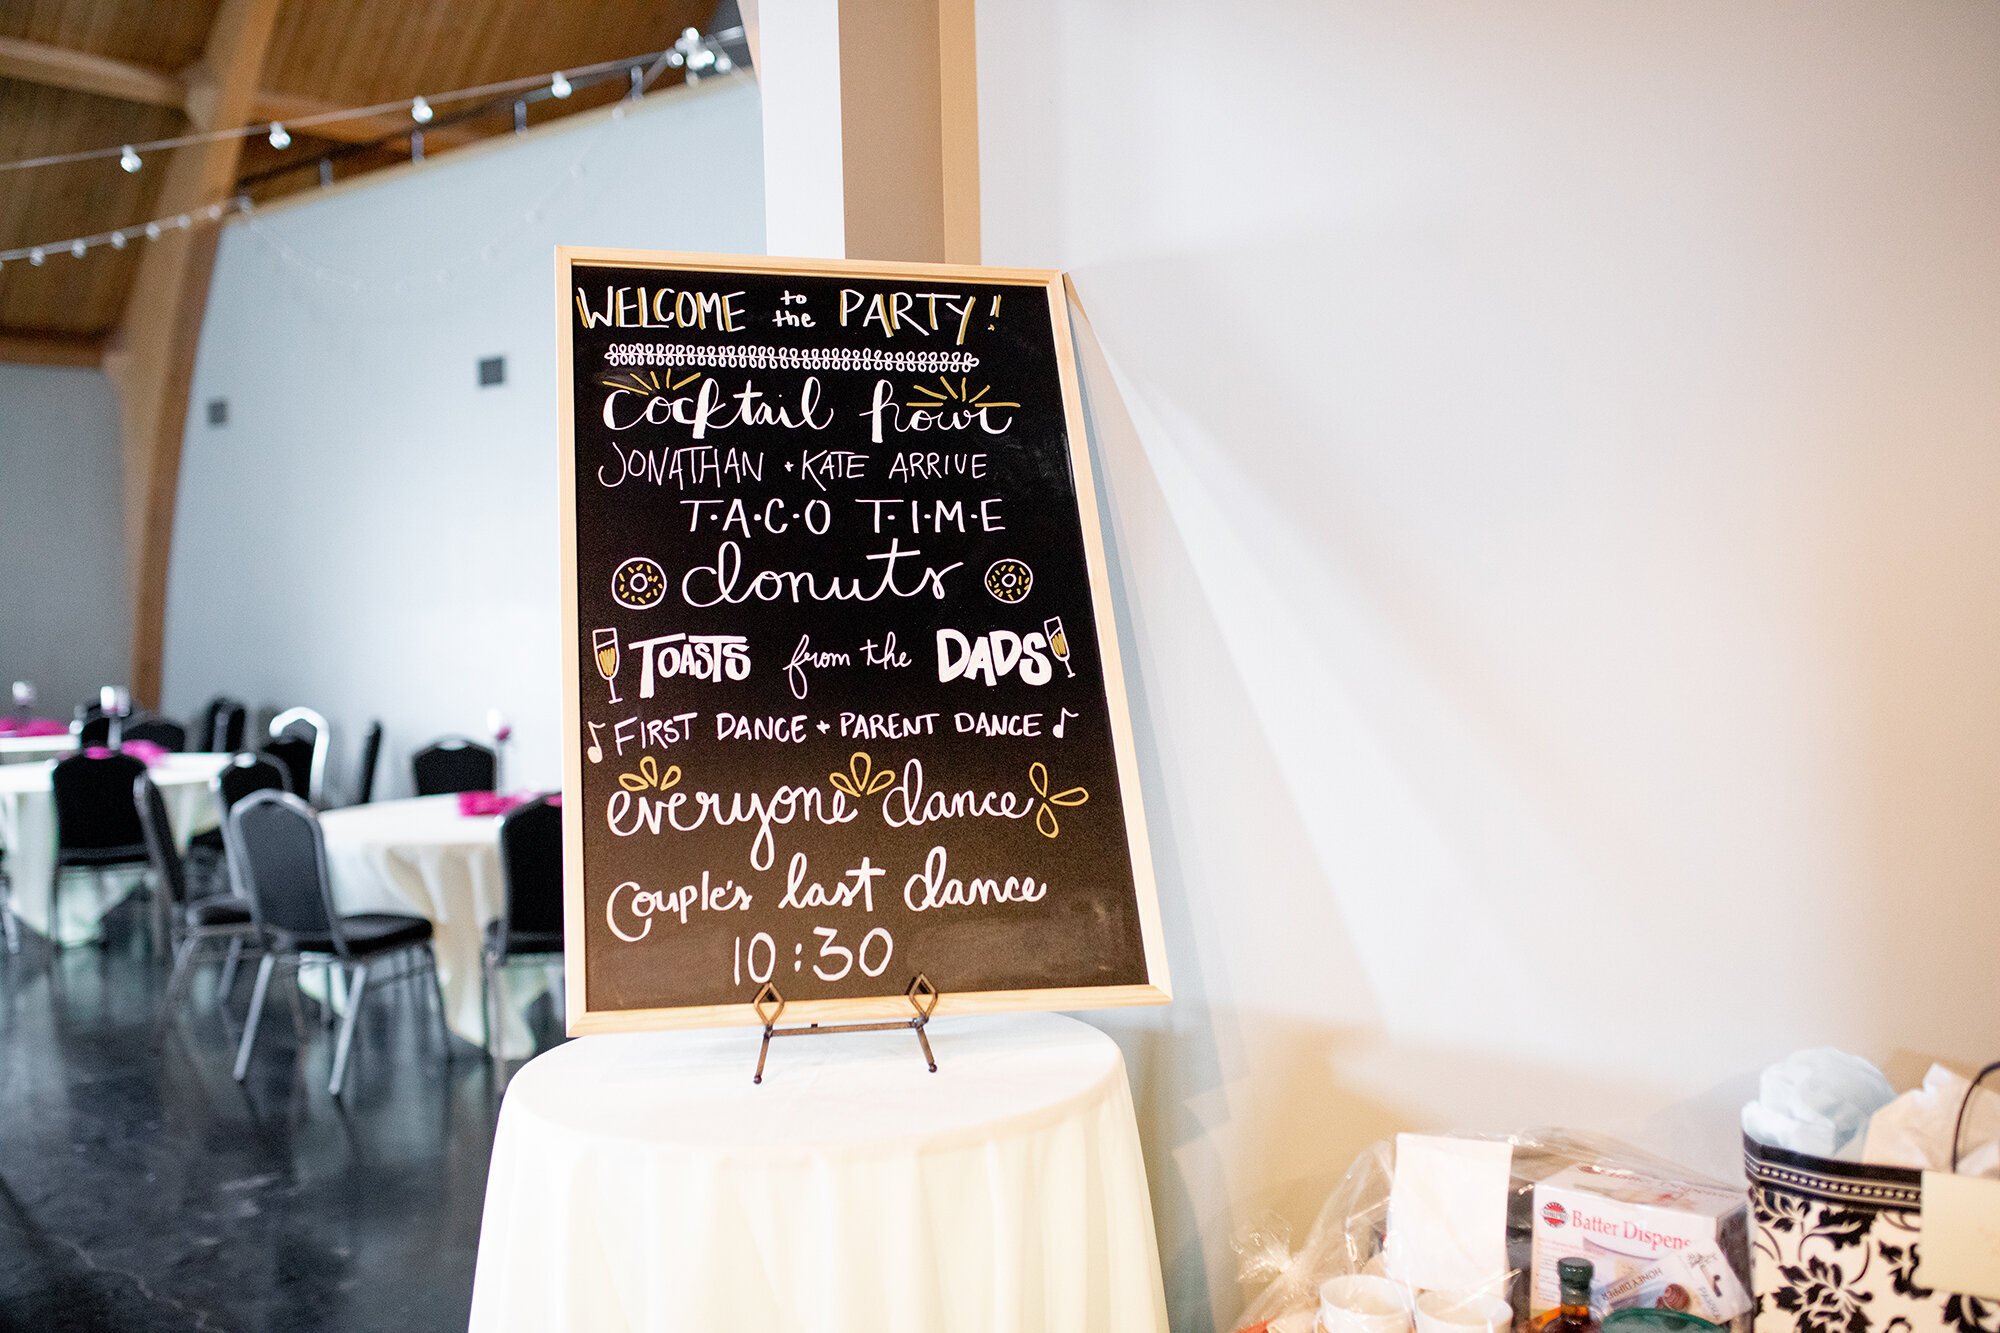 WELCOME to the PARTY!
cocktail hour
JONATHAN + KATE ARRIVE
T·A·C·O T·I·M·E
donuts
TOASTS from the DADS
FIRST DANCE + PARENT DANCE
everyone dance
Couple's last dance
10:30
Batter Dispens
HONEY DIPPER